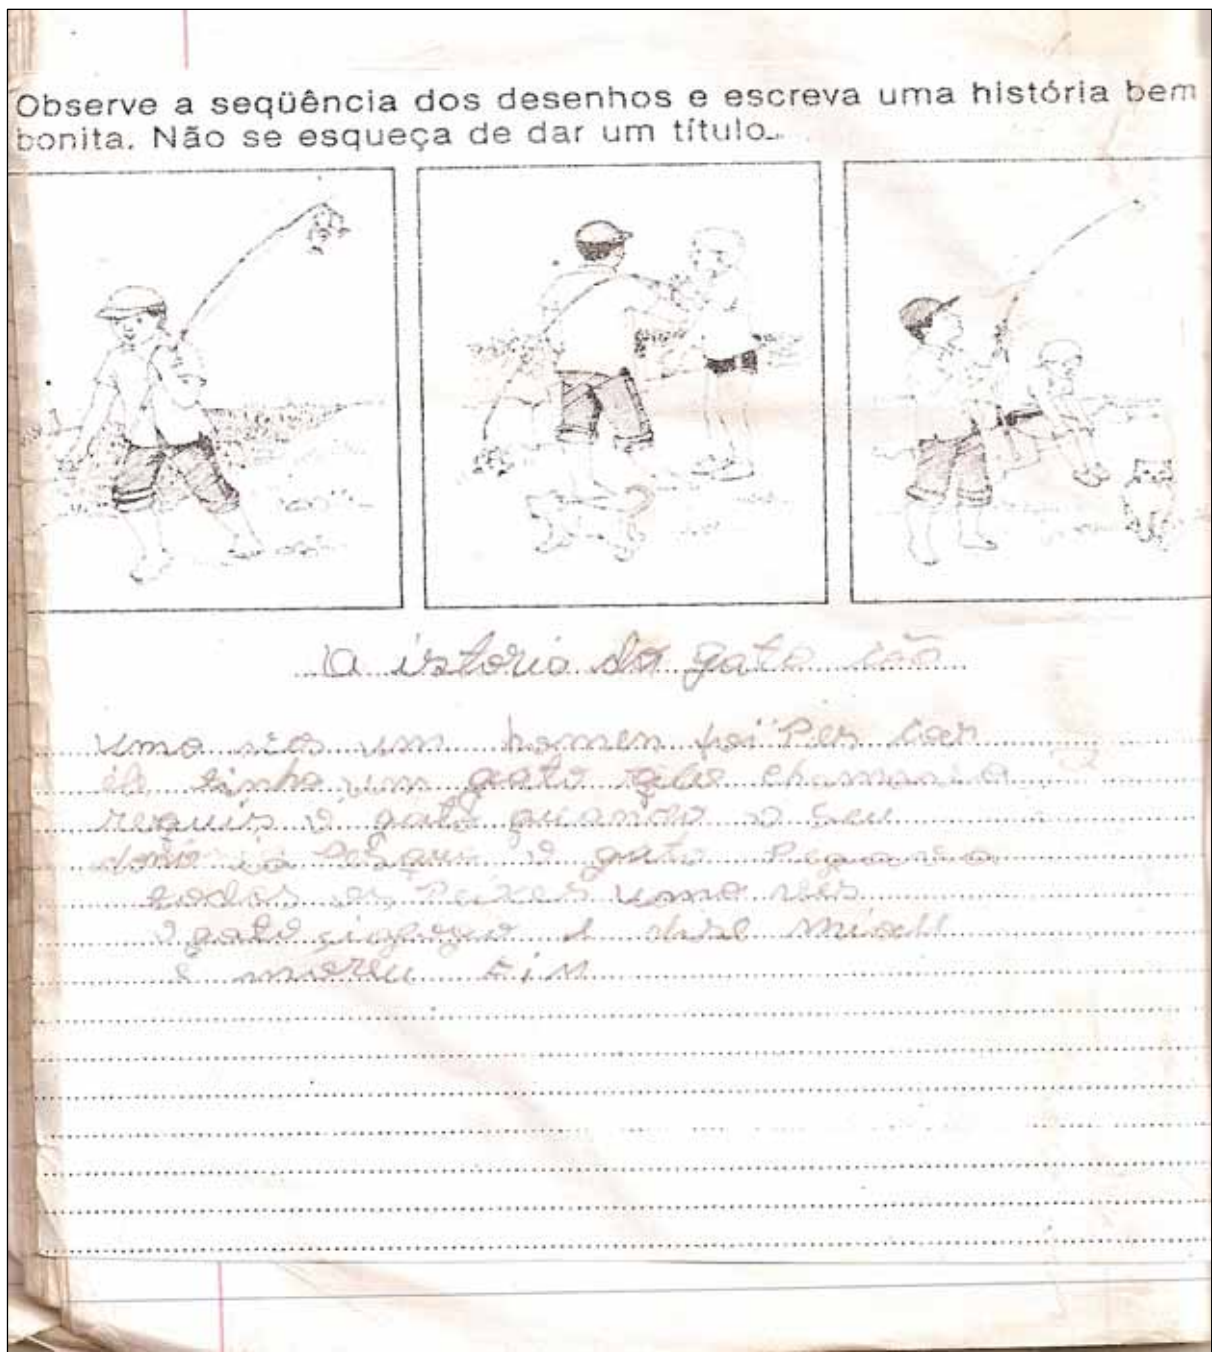 Observe a seqüência dos desenhos e escreva uma história bem
bonita. Não se esqueça de dar um título.
A istoria do gato
uma ves um homen foi Pes car
ele tinha um gato que chamava
requis o gato quando o seu
dono ia o gato Pegava
todos os Peixes uma ves
o gato e dise miau
e moreu FiM